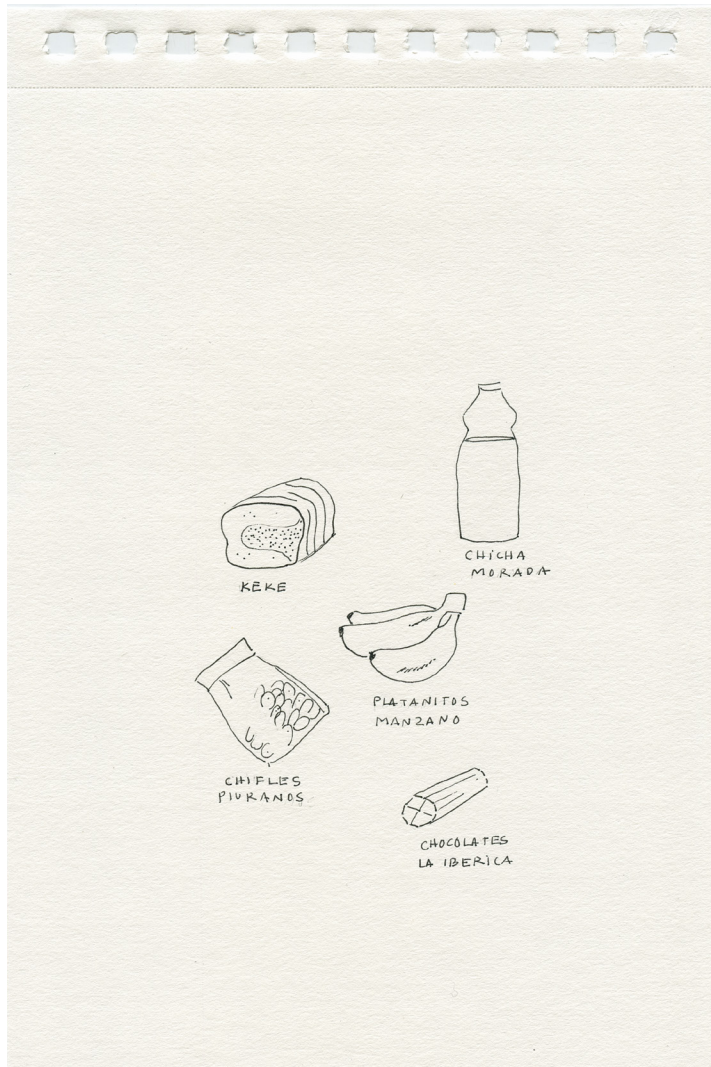 CHICHA
MORADA
KEKE
PLATANITOS
MANZANO
CHIFLES
PIURANOS
CHOCOLATES
LA IBERICA